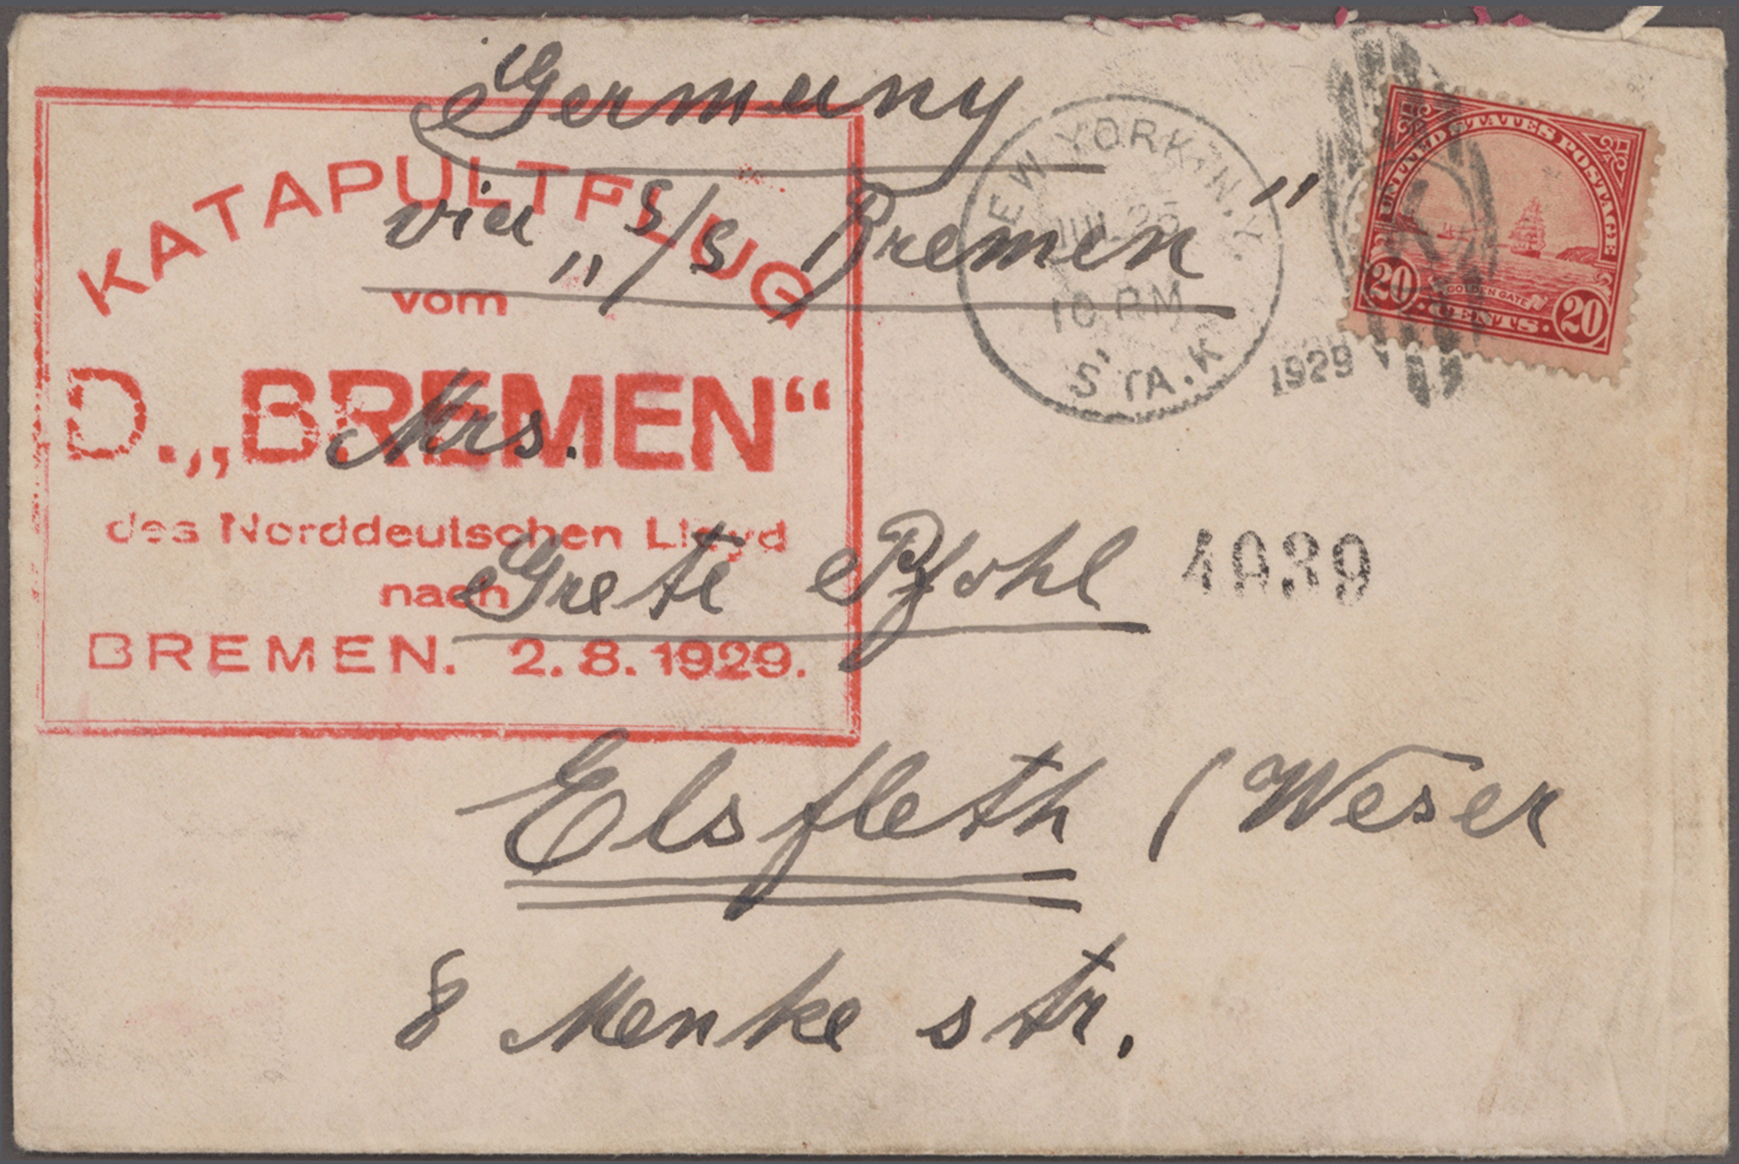 Germany
via „S/S Bremen"
Mrs.
Grete Pfohl
Elsfleth (Weser
8 Menke str.
KATAPULTFLUG
vom
D. „BREMEN“
des Norddeutschen Lloyd
nach
BREMEN. 2.8.1929.
NEW YORK, N.Y.
JUL 25
10 PM
STA. K
1929
UNITED STATES POSTAGE
GOLDEN GATE
20 CENTS 20
4039